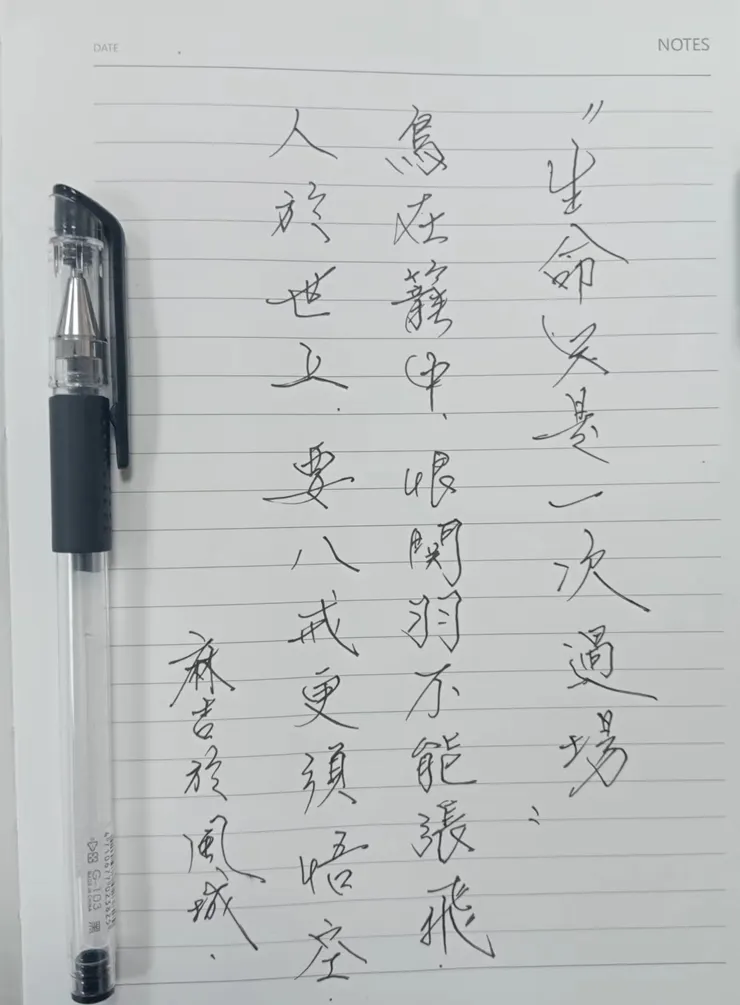 DATE
NOTES
"生命只是一次過場"
鳥在籠中.恨関羽不能張飛.
人於世上.要八戒更須悟空.
麻吉於風城.
G-103 黑